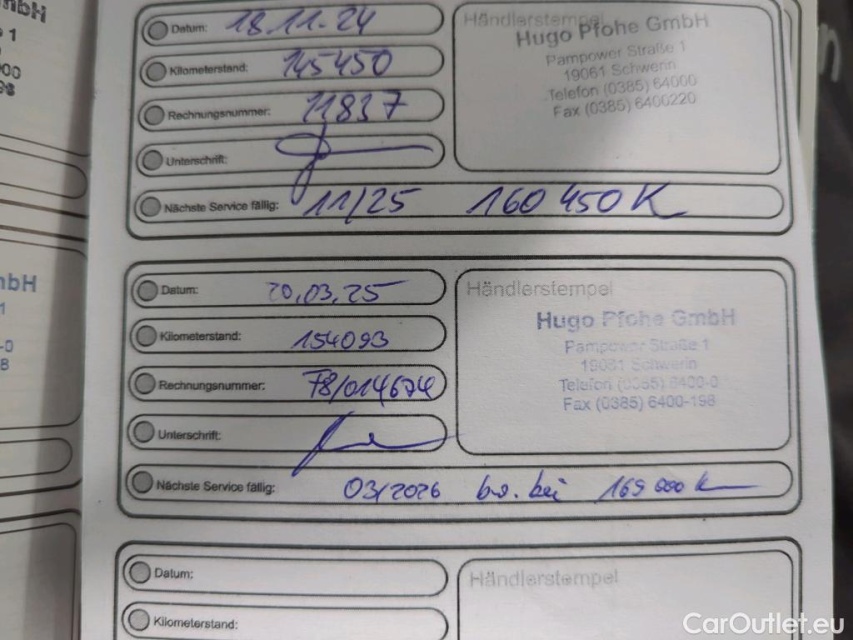 nbH
1
Datum: 18.11.24
Kilometerstand: 145450
Rechnungsnummer: 11837
Unterschrift:
Händlerstempel
Hugo Pfohe GmbH
Pampower Straße 1
19061 Schwerin
Telefon (0385) 64000
Fax (0385) 6400220
Nächste Service fällig: 11/25 160 450 K
nbH
1
-0
8
Datum: 20.03.25
Kilometerstand: 154093
Rechnungsnummer: F8/014674
Unterschrift:
Händlerstempel
Hugo Pfohe GmbH
Pampower Straße 1
19061 Schwerin
Telefon (0385) 6400-0
Fax (0385) 6400-198
Nächste Service fällig: 03/2026 bw. bei 169 000 k
Datum:
Kilometerstand:
Händlerstempel
CarOutlet.eu